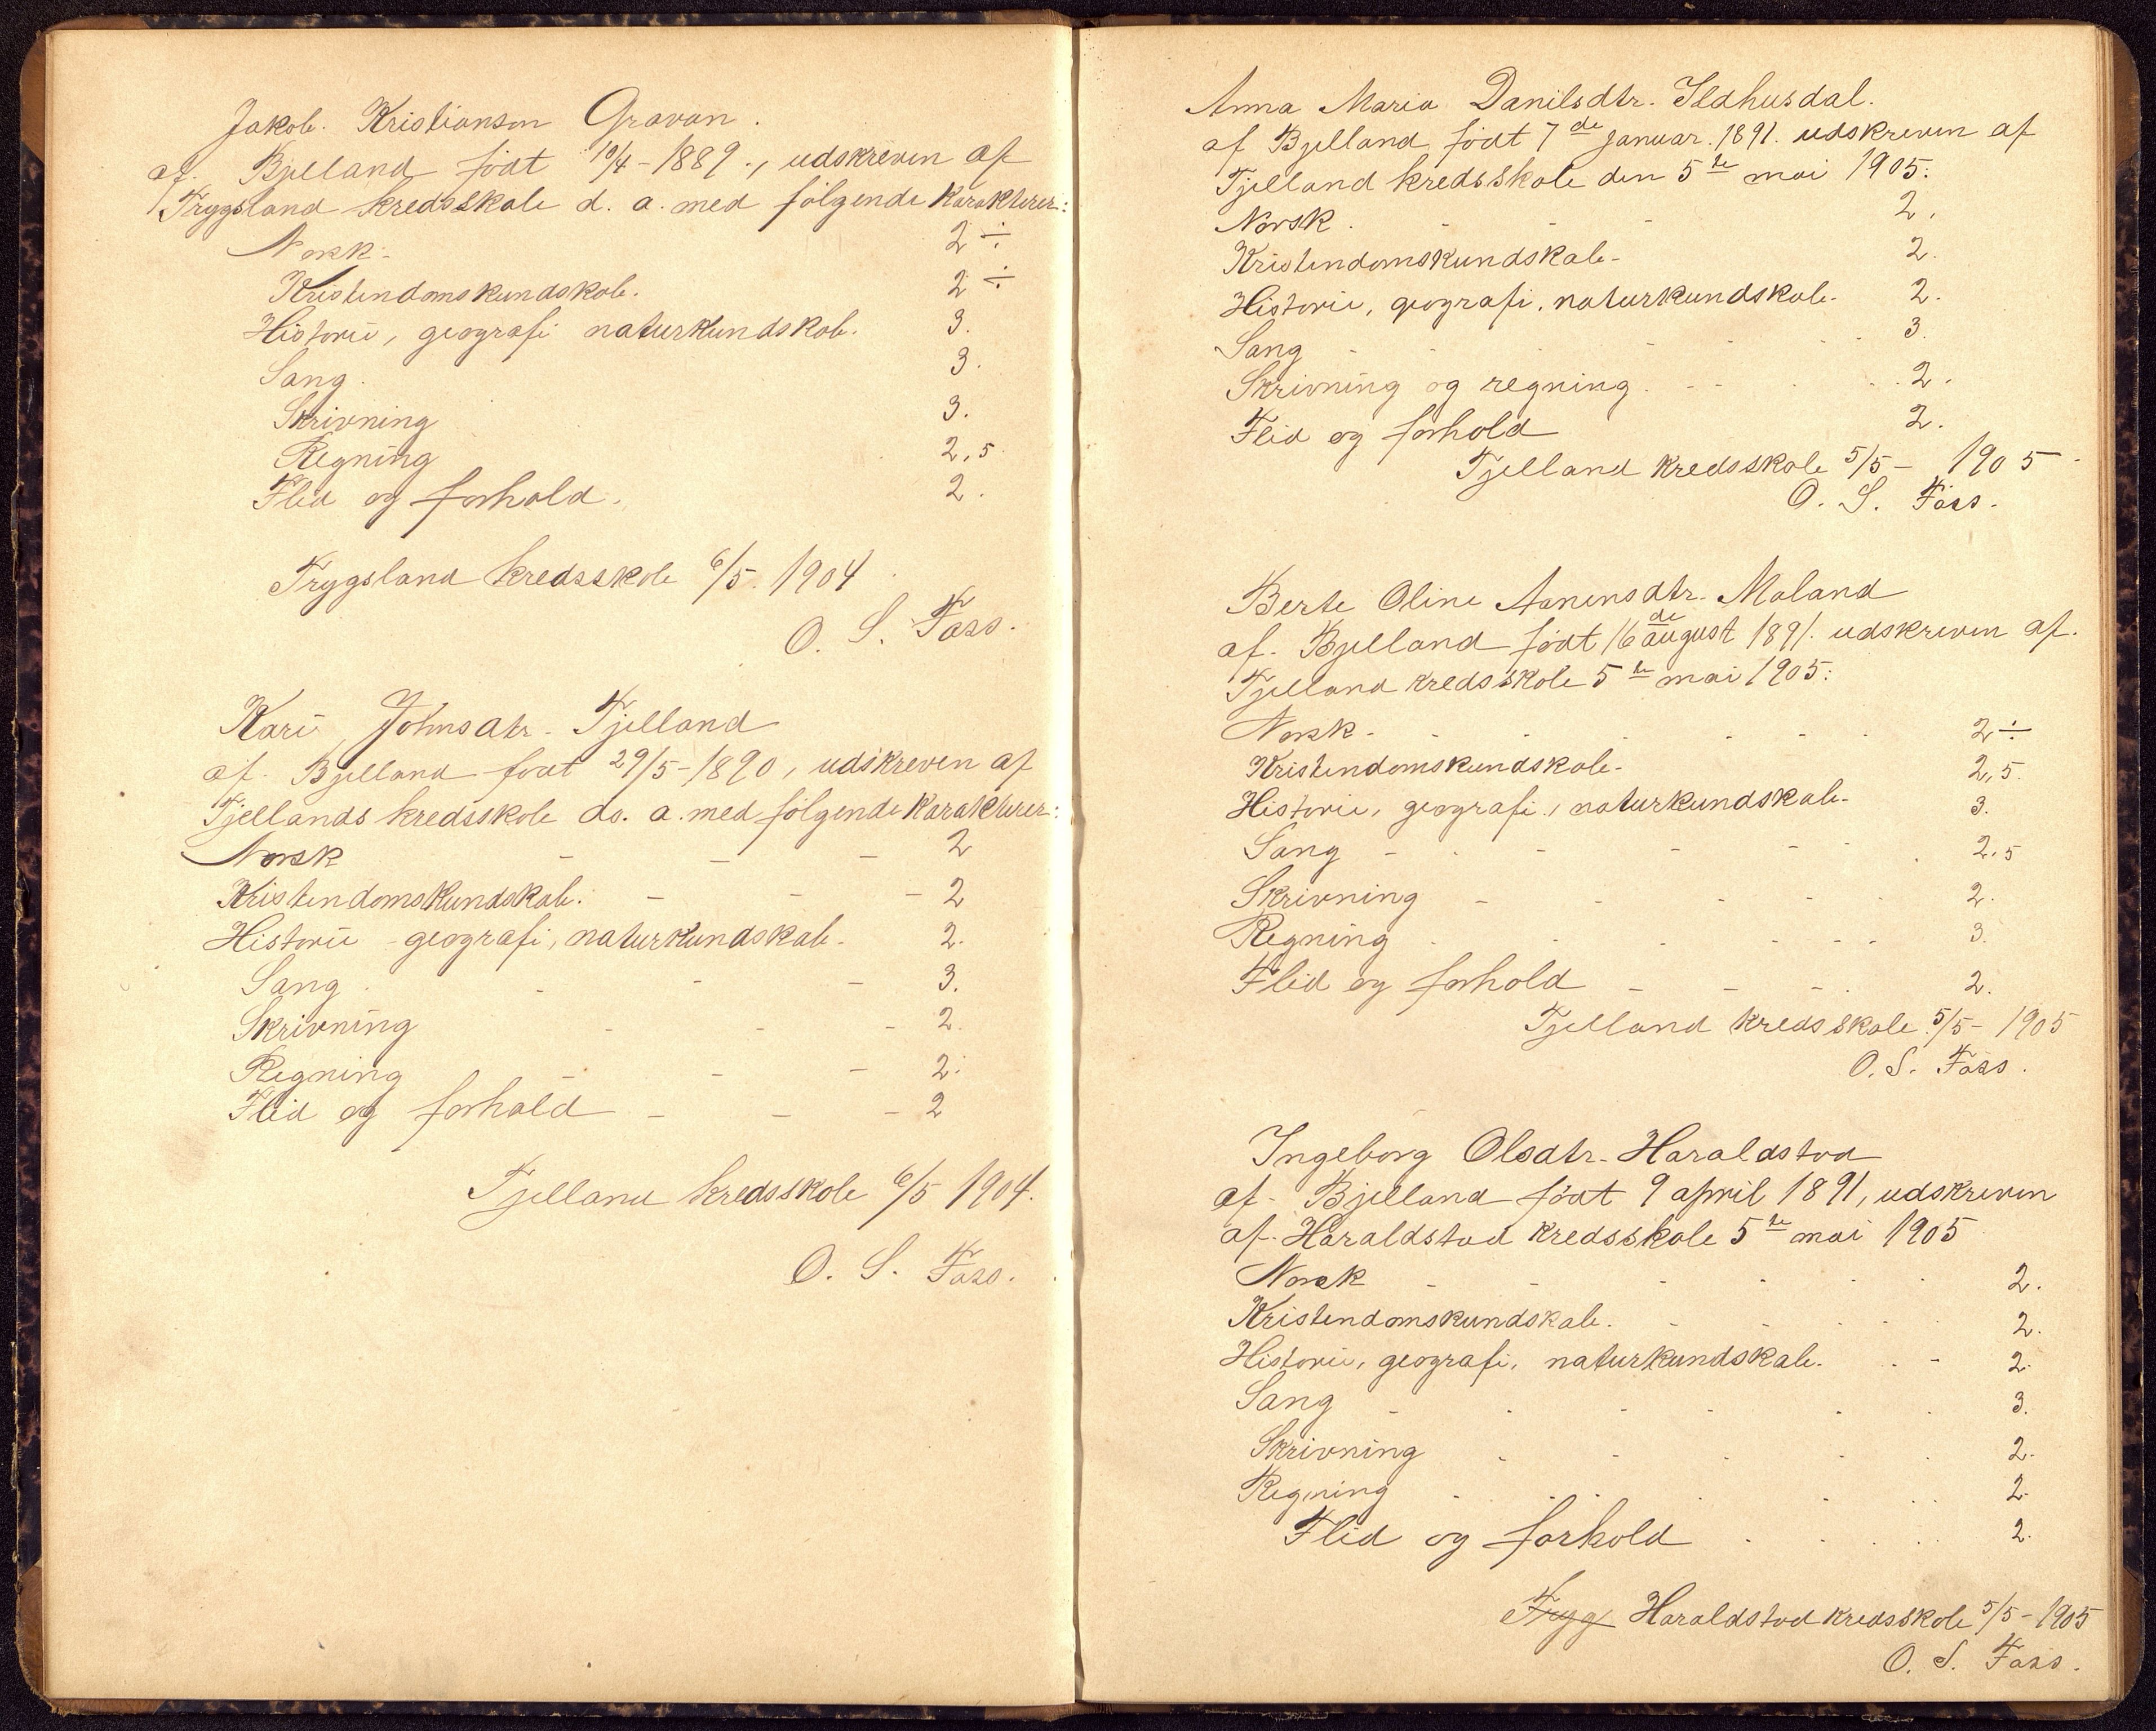 Jakob Kristianson Gravan.
af. Bjelland født 10/4-1889., udskreven af
Trygsland kredsskole d. a. med følgende karakterer:
Norsk- 2 ÷
Kristendomskundskab. 2 ÷
Historie, geografi naturkundskab. 3.
Sang. 3.
Skrivning 3.
Regning 2,5
Flid og forhold. 2.
Trygsland kredsskole 6/5. 1904
O. S. Foss.
Kari Johnsdtr. Tjelland
af. Bjelland født 29/5-1890, udskreven af
Tjellands kredsskole ds. a. med følgende karakterer:
Norsk - - - 2
Kristendomskundskab. - - - 2
Historie - geografi, naturkundskab- 2.
Sang. - - - 3.
Skrivning - - - 2.
Regning - - - 2.
Flid og forhold - - - 2
Tjelland kredsskole 6/5 1904.
O. S. Foss.
Anna Maria Danilsdtr. Ildhusdal.
af Bjelland født 7de januar. 1891. udskreven af
Tjelland kredsskole den 5te mai 1905.
Norsk. - - - 2.
Kristendomskundskab- 2.
Historie, geografi, naturkundskab- 2.
Sang - - - - - 3.
Skrivning og regning. - - - - 2.
Flid og forhold 2.
Tjelland kredsskole 5/5- 1905
O. S. Foss.
Berte Oline Aanensdtr. Moland
af. Bjelland født 16de august 1891. udskreven af.
Tjelland kredsskole 5te mai 1905:
Norsk- - - - - 2 ÷
Kristendomskundskab- 2,5.
Historie, geografi, naturkundskab- 3.
Sang - - - - - 2,5
Skrivning - - - - - 2.
Regning - - - - - 3.
Flid og forhold - - - 2.
Tjelland kredsskole 5/5- 1905
O. S. Foss.
Ingeborg Olsdtr. Haraldstad
af- Bjelland født 9 april 1891, udskreven
af- Haraldstad kredsskole 5te mai 1905
Norsk - - - - - 2.
Kristendomskundskab. - - - - 2.
Historie, geografi, naturkundskab. - - 2.
Sang - - - - - 3.
Skrivning - - - - - 2.
Regning - - - - - 2.
Flid og forhold - - - - 2.
Tryg Haraldstad kredsskole 5/5- 1905
O. S. Foss.